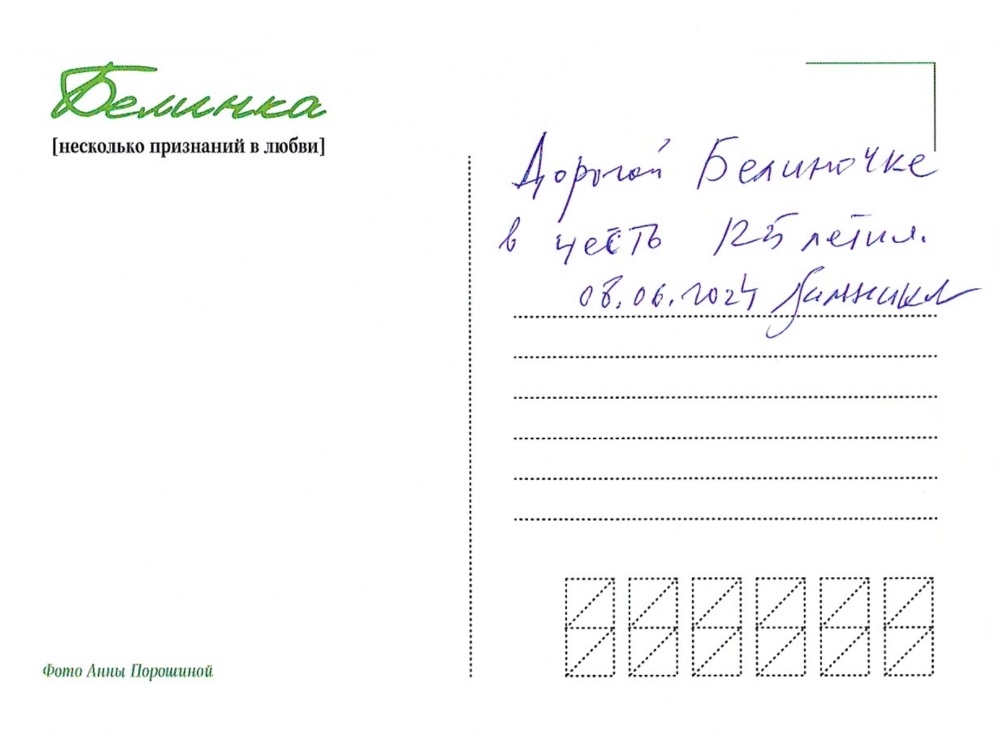 Белинка
[несколько признаний в любви]
Дорогой Белиночке
в честь 125 летия.
08.06.2024
Фото Анны Порошиной